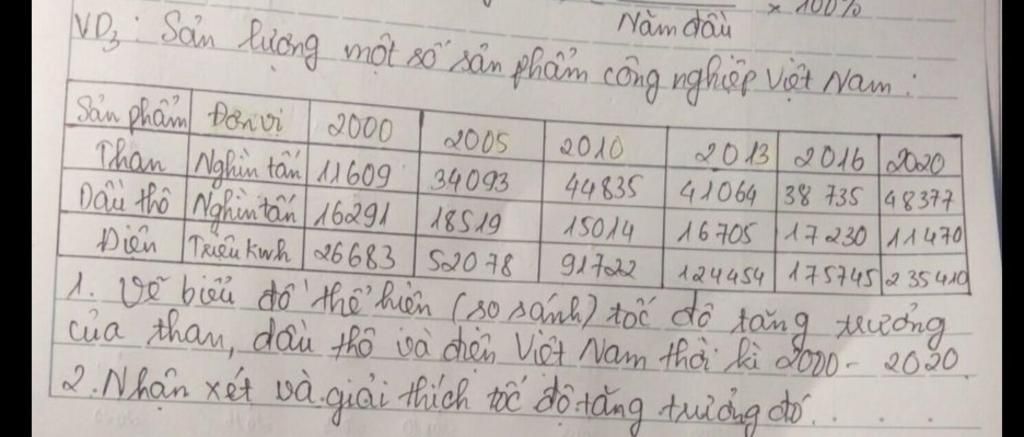 Năm đầu x 100%
VD3: Sản lượng một số sản phẩm công nghiệp Việt Nam:
Sản phẩm Đơn vị 2000 2005 2010 2013 2016 2020
Than Nghìn tấn 11609 34093 44835 41064 38 735 48377
Dầu thô Nghìn tấn 16291 18519 15014 16705 17230 11470
Điện Triệu kwh 26683 52078 91722 124454 175745 235410
1. Vẽ biểu đồ thể hiện (so sánh) tốc độ tăng trưởng
của than, dầu thô và điện Việt Nam thời kì 2000 - 2020
2. Nhận xét và giải thích tốc độ tăng trưởng đó....